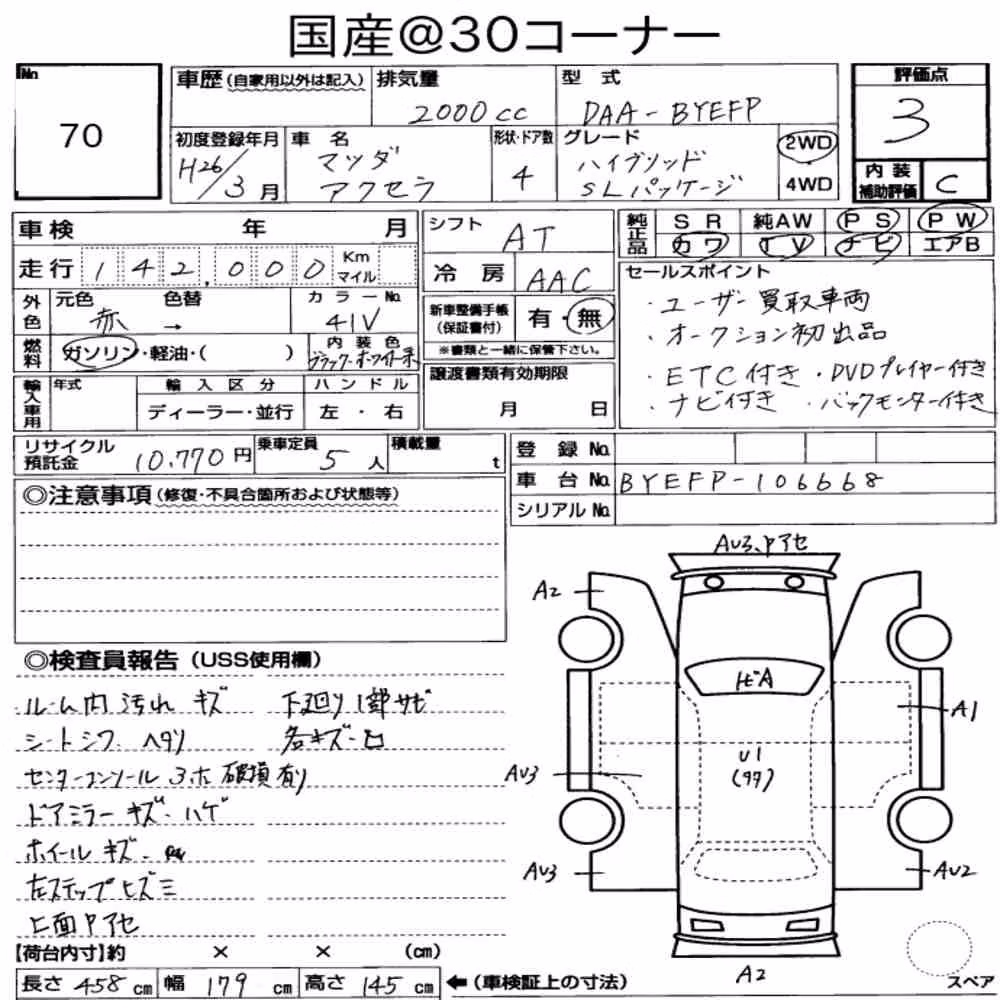 国産@30コーナー
No. 70
車歴(自家用以外は記入) 排気量 2000cc 型式 DAA-BYEFP 評価点 3
初度登録年月 H26/3月 車名 マツダ アクセラ 形状・ドア数 4 グレード ハイブリッド SLパッケージ 2WD 4WD 内装補助評価 C
車検 年 月
走行 142,000 Km マイル
シフト AT
冷房 AAC
純正品 SR 純AW PS PW
カワ TV ナビ エアB
外色 元色 赤 → 色替 カラーNo. 41V
燃料 ガソリン・軽油・( ) 内装色 ブラック・ホワイト系
新車整備手帳(保証書付) 有・無
※書類と一緒に保管下さい。
セールスポイント
・ユーザー買取車両
・オークション初出品
・ETC付き ・DVDプレイヤー付き
・ナビ付き ・バックモニター付き
輸入車用 年式 輸入区分 ハンドル
ディーラー・並行 左・右
譲渡書類有効期限
月 日
リサイクル預託金 10,770円 乗車定員 5人 積載量 t
登録No.
車台No. BYEFP-106668
シリアルNo.
◎注意事項(修復・不具合箇所および状態等)
◎検査員報告(USS使用欄)
ルーム内汚れ キズ 下廻り1部サビ
シートシワ ヘタリ 各キズ・凹
センターコンソール 3ホ 破損有り
ドアミラー キズ・ハゲ
ホイール キズ・
左ステップヒズミ
上面Pアセ
【荷台内寸】約 × × (cm)
長さ 458 cm 幅 179 cm 高さ 145 cm ←(車検証上の寸法)
AU3、Pアセ
A2
ヒビA
A1
U1
(タタ)
AU3
AU3
AU2
A2
スペア